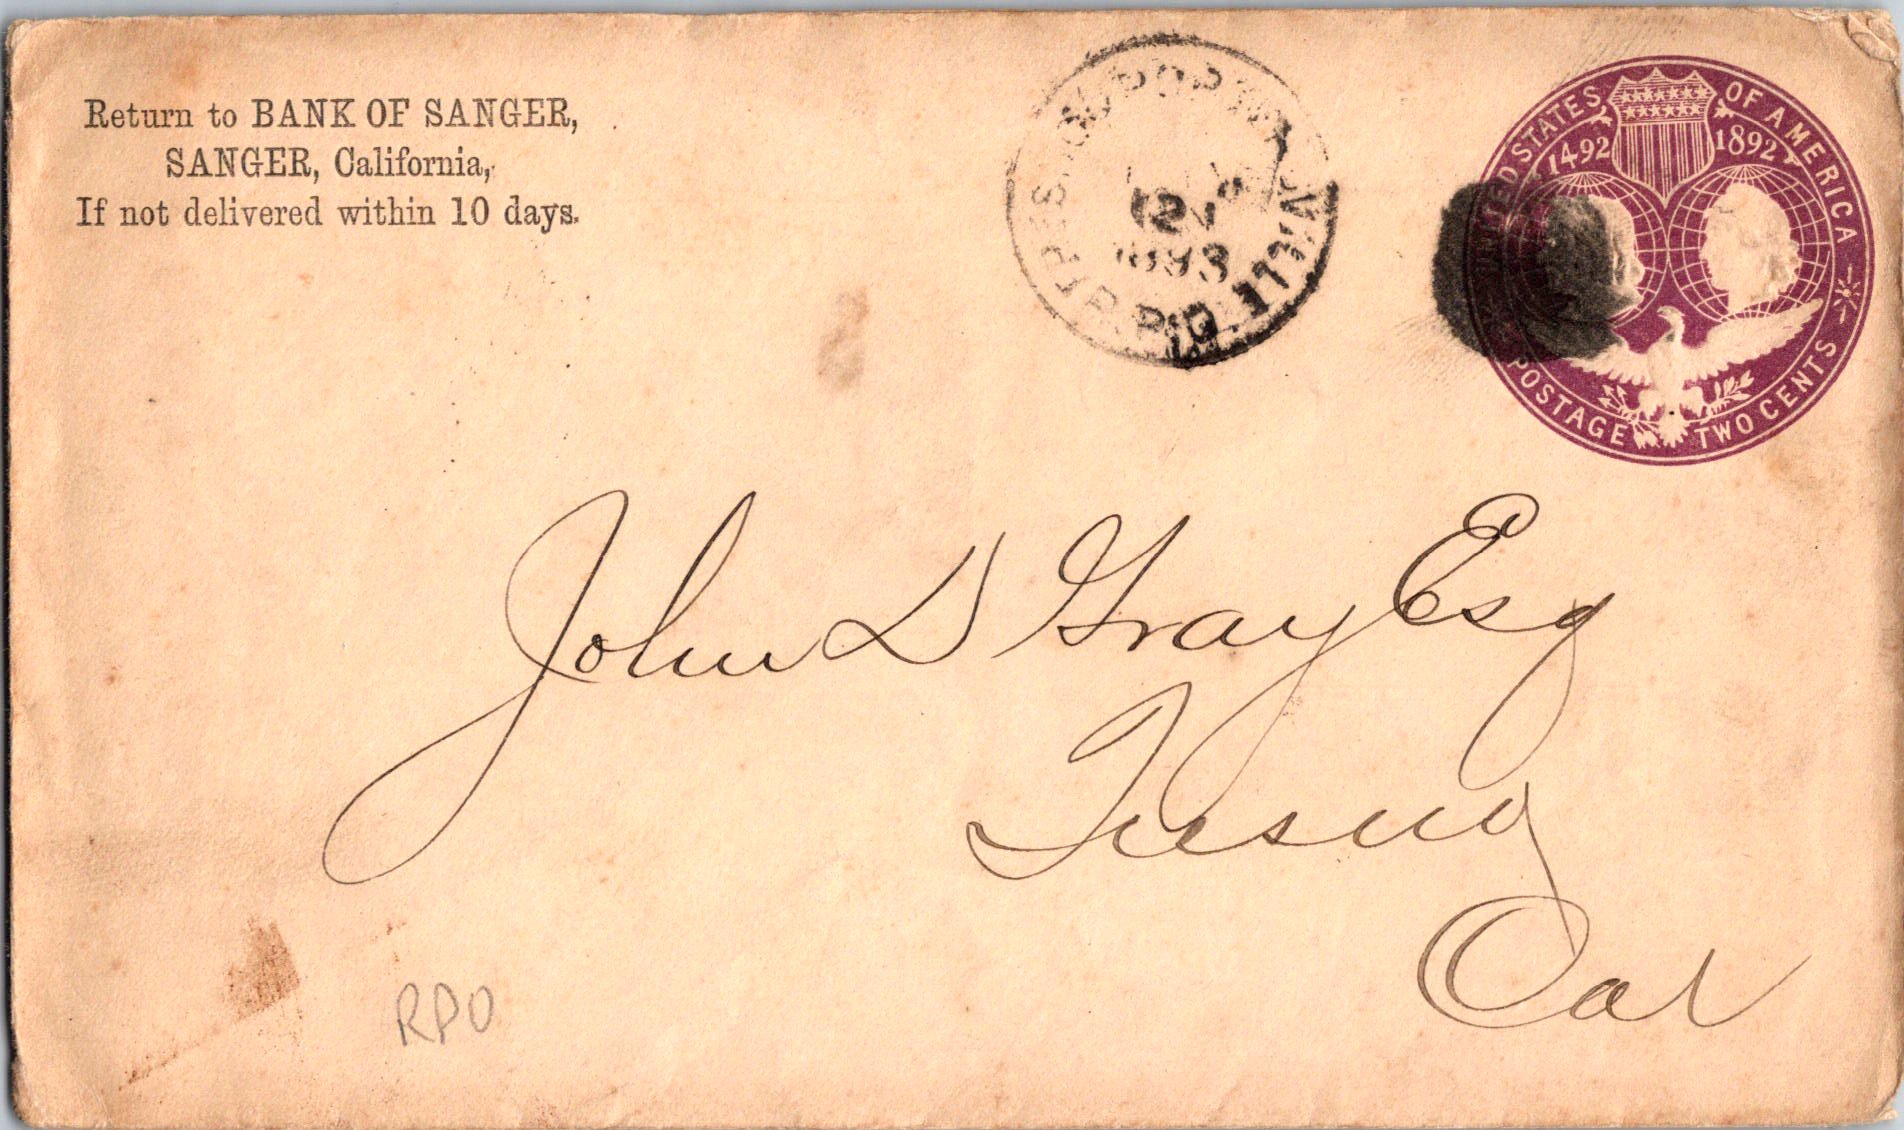 Return to BANK OF SANGER,
SANGER, California,
If not delivered within 10 days.
1893
R.P.O.
UNITED STATES OF AMERICA
1492 1892
POSTAGE TWO CENTS
John D Gray Esq
Fresno
Cal
RPO